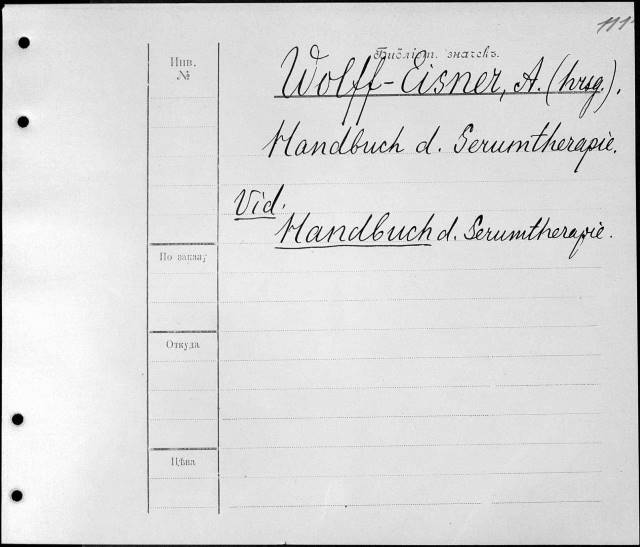 Библіот. значекъ.
Инв.
№
Wolff-Eisner, A. (hrsg.).
Handbuch d. Serumtherapie.
Vid.
Handbuch d. Serumtherapie.
По заказу
Откуда
Цѣна